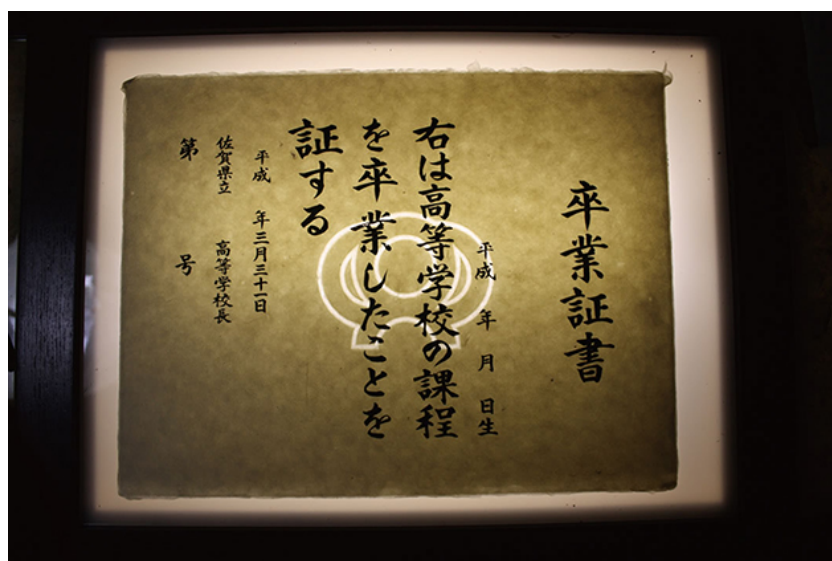 卒業証書
平成　年　月　日生
右は高等学校の課程
を卒業したことを
証する
平成　年三月三十一日
佐賀県立　高等学校長
第　号